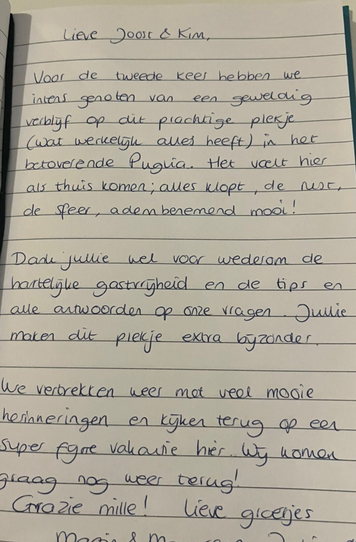 Lieve Joost & Kim,
Voor de tweede keer hebben we
intens genoten van een geweldig
verblijf op dit prachtige plekje
(wat werkelijk alles heeft) in het
betoverende Puglia. Het voelt hier
als thuis komen; alles klopt, de rust,
de sfeer, adembenemend mooi!
Dank jullie wel voor wederom de
hartelijke gastvrijheid en de tips en
alle antwoorden op onze vragen. Jullie
maken dit plekje extra bijzonder.
We vertrekken weer met veel mooie
herinneringen en kijken terug op een
super fijne vakantie hier. Wij komen
graag nog weer terug!
Grazie mille! Lieve groetjes